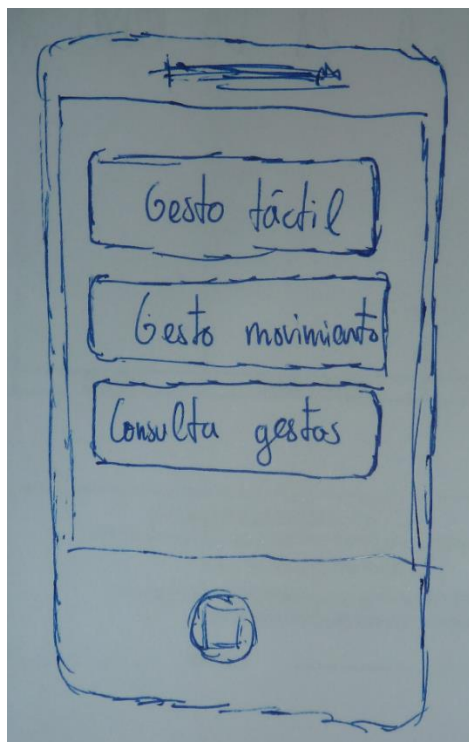 Gesto táctil
Gesto movimiento
Consulta gestos